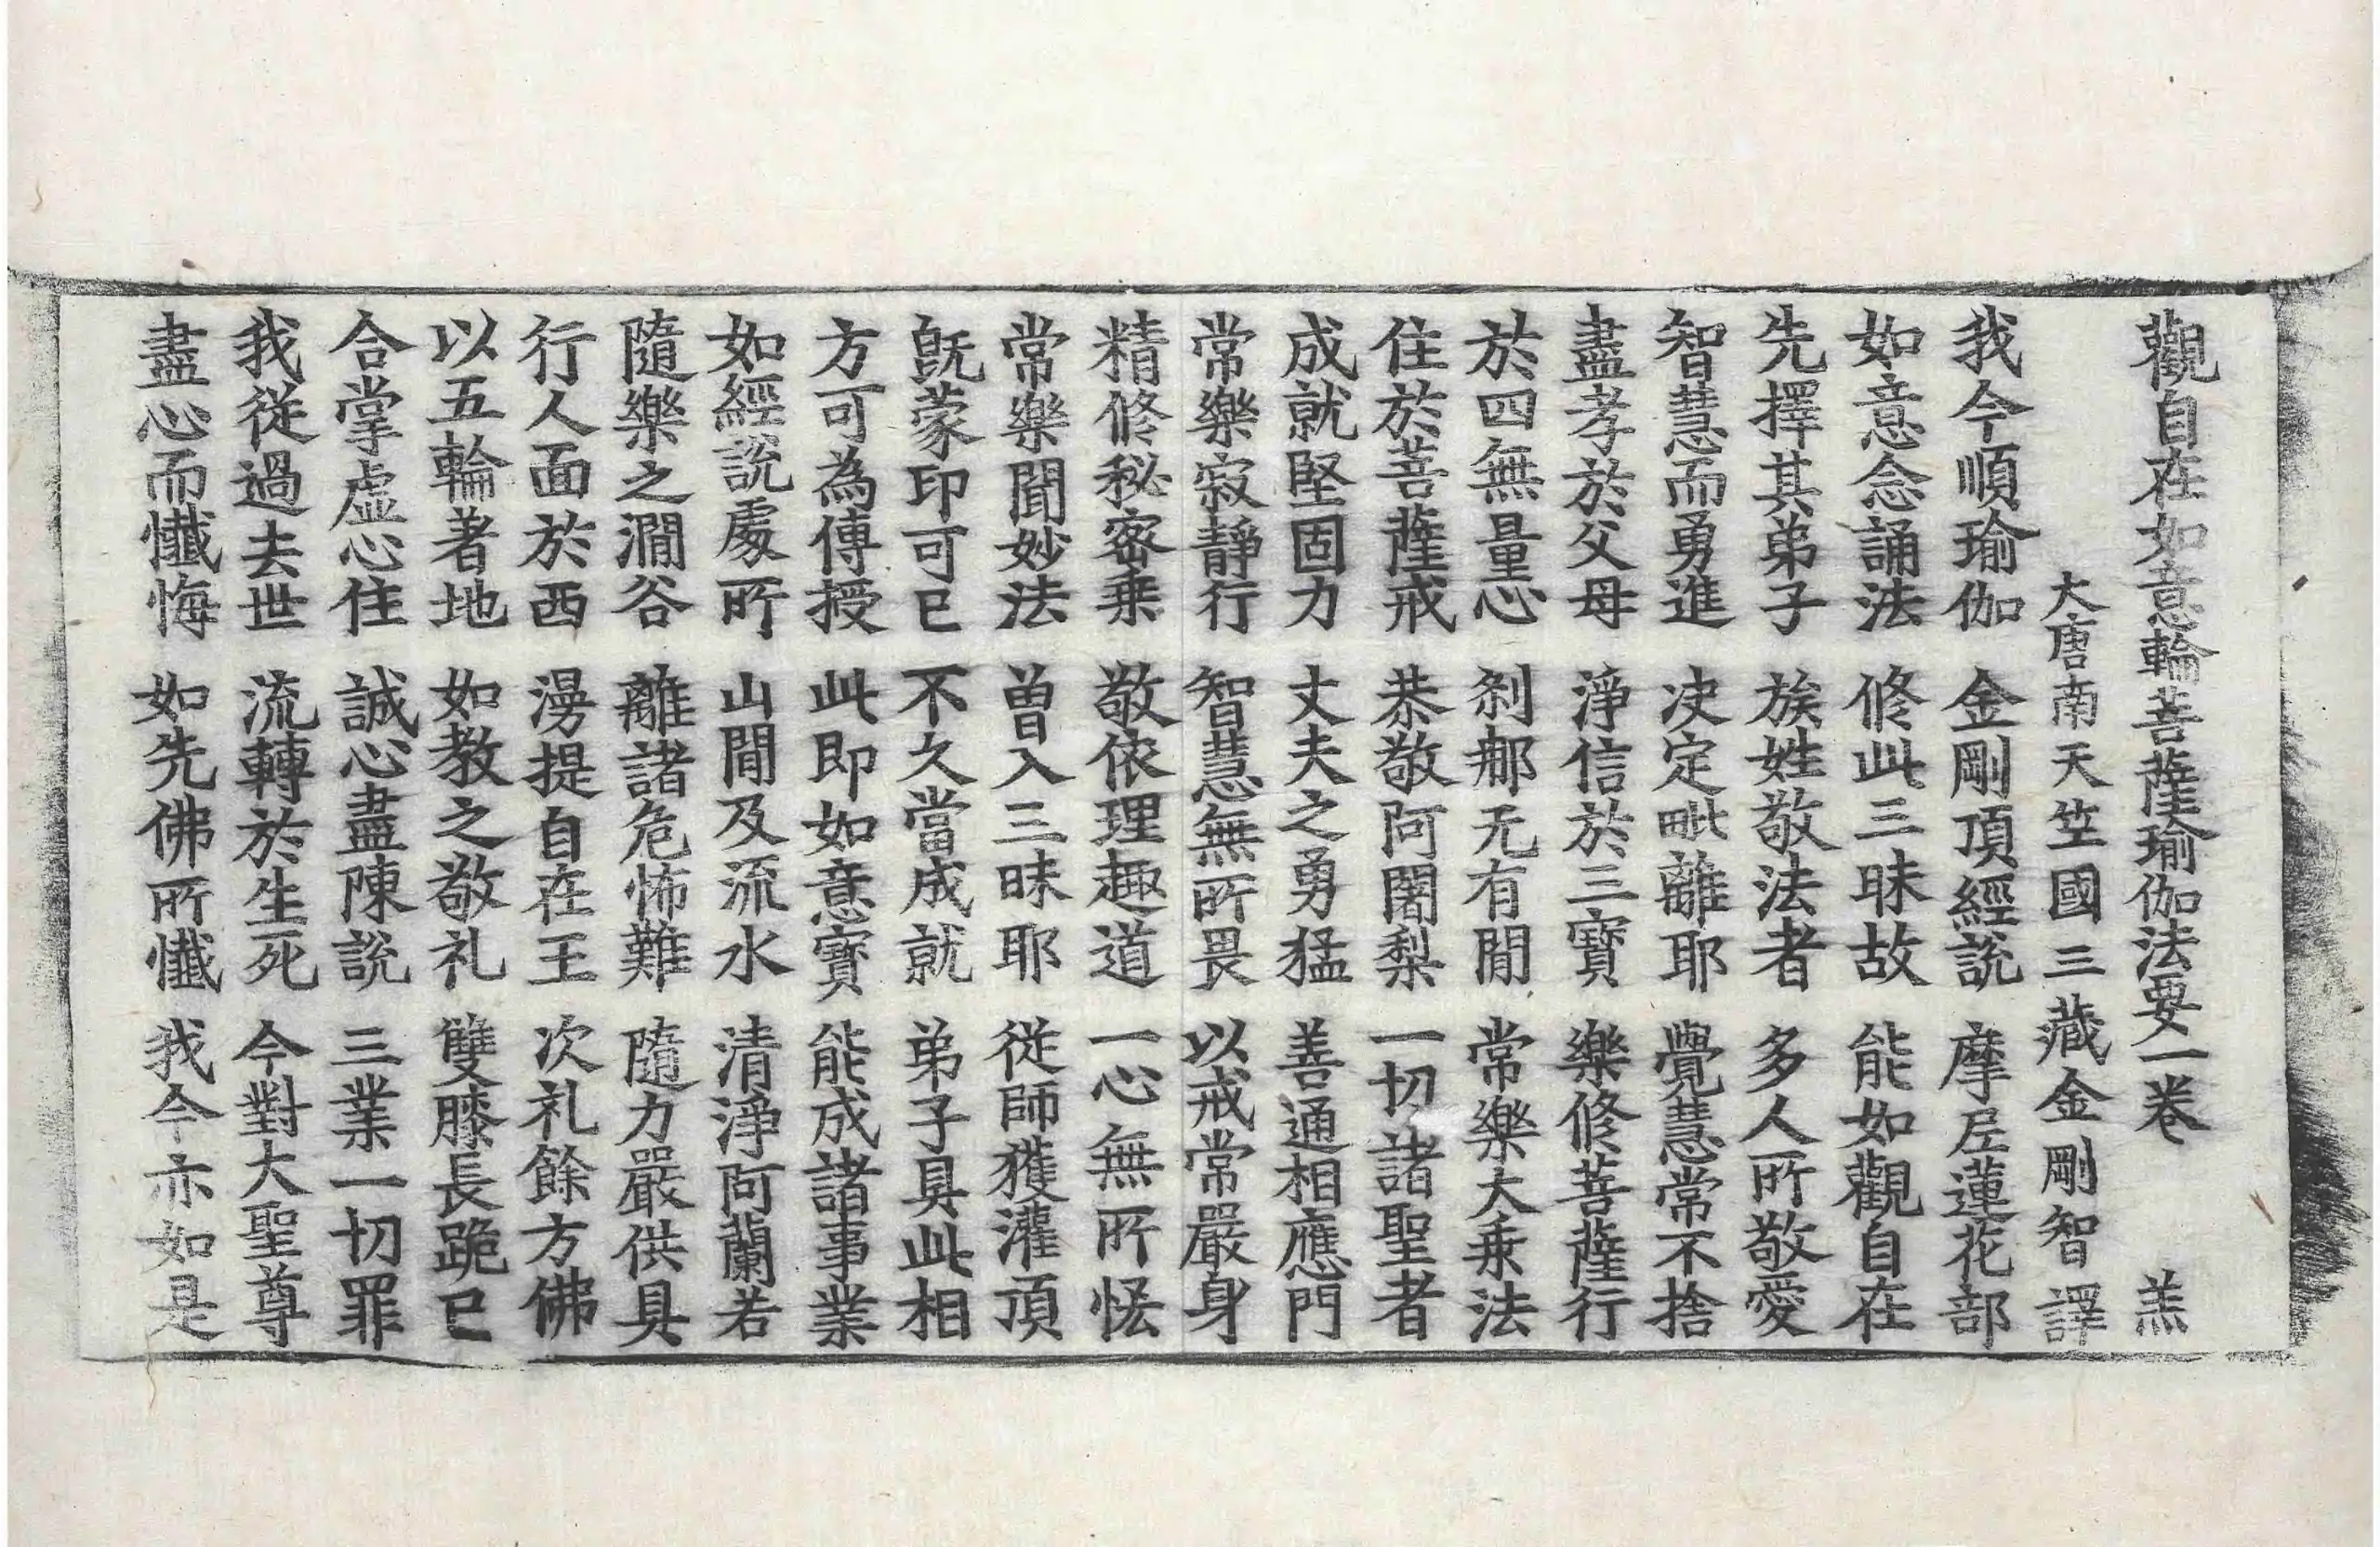 觀自在如意輪菩薩瑜伽法要一卷 羔
大唐南天竺國三藏金剛智譯
我今順瑜伽 金剛頂經說 摩尼蓮花部
如意念誦法 修此三昧故 能如觀自在
先擇其弟子 族姓敬法者 多人所敬愛
智慧而勇進 决定毗離耶 覺慧常不捨
盡孝於父母 淨信於三寶 樂修菩薩行
於四無量心 剎郍无有閒 常樂大乗法
住於菩薩戒 恭敬阿闍梨 一切諸聖者
成就堅固力 丈夫之勇猛 善通相應門
常樂寂靜行 智慧無所畏 以戒常嚴身
精修秘密乗 敬依理趣道 一心無所恡
常樂聞妙法 曽入三昧耶 従師獲灌頂
旣蒙印可已 不久當成就 弟子具此相
方可為傳授 此即如意寶 能成諸事業
如經說處所 山閒及流水 清淨阿蘭若
隨樂之澗谷 離諸危怖難 隨力嚴供具
行人面於西 漫提自在王 次礼餘方佛
以五輪著地 如教之敬礼 雙膝長跪已
合掌虛心住 誠心盡陳說 三業一切罪
我従過去世 流轉於生死 今對大聖尊
盡心而懺悔 如先佛所懺 我今亦如是